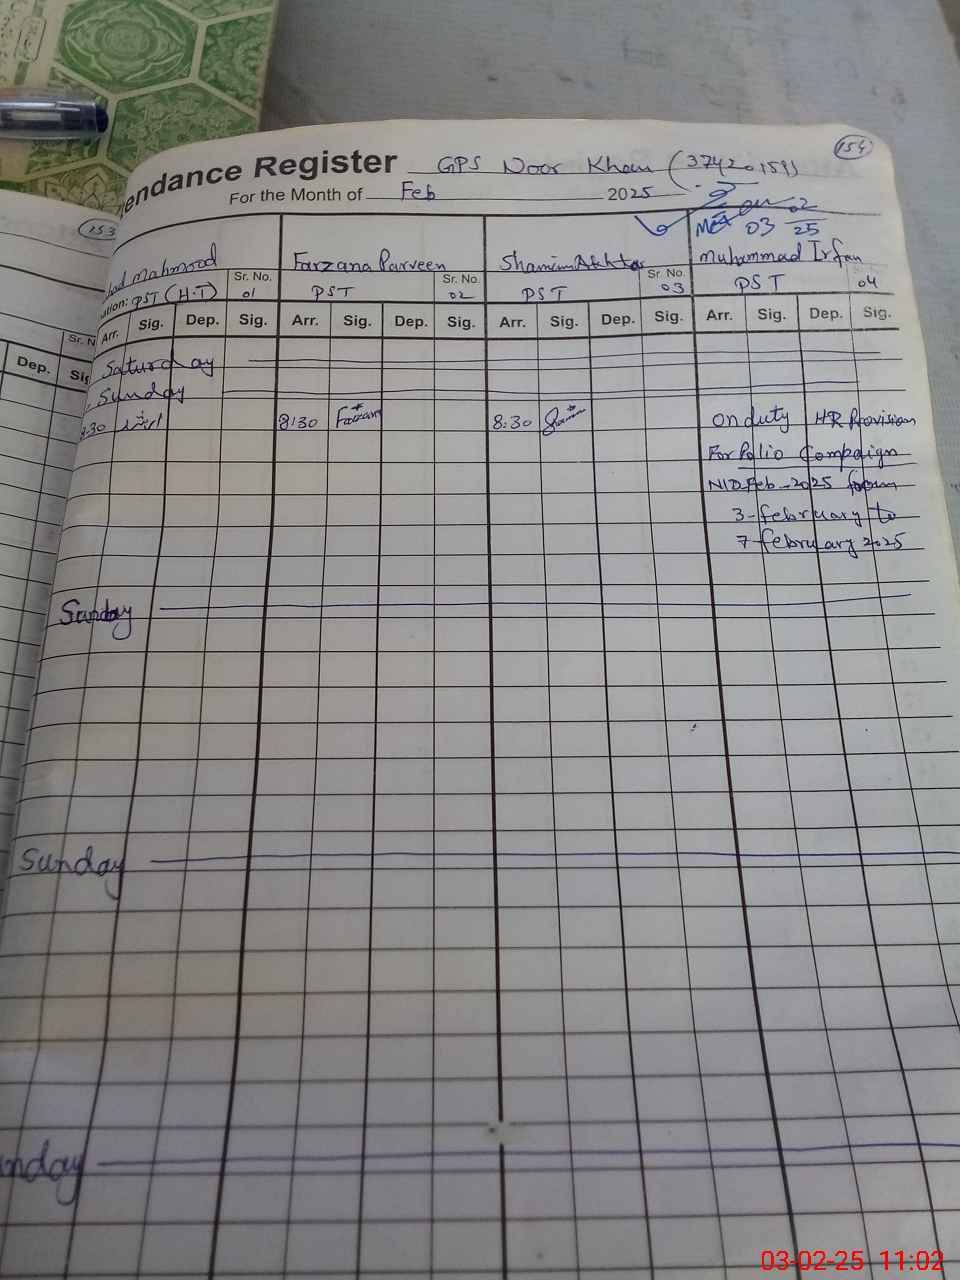 154
endance Register GPS Noor Khan (37420159)
For the Month of Feb 2025
03 02 25
153
Mahmood Farzana Parveen Shamim Akhtar Muhammad Irfan
ation: PST (H.T) Sr. No. 01 PST Sr. No. 02 PST Sr. No. 03 PST 04
Arr. Sig. Dep. Sig. Arr. Sig. Dep. Sig. Arr. Sig. Dep. Sig. Arr. Sig. Dep. Sig.
Sr. N
Dep. Sig
Saturday
Sunday
8:30 8:30 Farzana 8:30 On duty HR Provision
For Polio Compaign
NID Feb-2025 from
3-february to
7 february 2025
Sunday
Sunday
nday
03-02-25 11:02